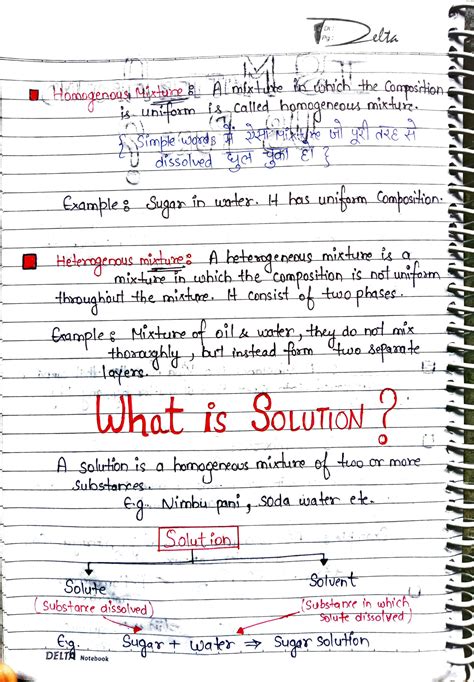 Delta
Homogenous Mixture : A mixture in which the composition
is uniform is called homogeneous mixture.
{ Simple words में ऐसा Mixture जो पूरी तरह से
dissolved घुल चुका हो }
Example : Sugar in water. It has uniform composition.
Heterogenous mixture : A heterogeneous mixture is a
mixture in which the composition is not uniform
throughout the mixture. It consist of two phases.
Example : Mixture of oil & water, they do not mix
thoroughly, but instead form two separate
layers.
What is SOLUTION ?
A solution is a homogeneous mixture of two or more
substances.
E.g. Nimbu pani, soda water etc.
Solution
Solute Solvent
(Substance dissolved) (Substance in which
solute dissolved)
Eg. Sugar + Water ⇒ Sugar solution
DELTA Notebook